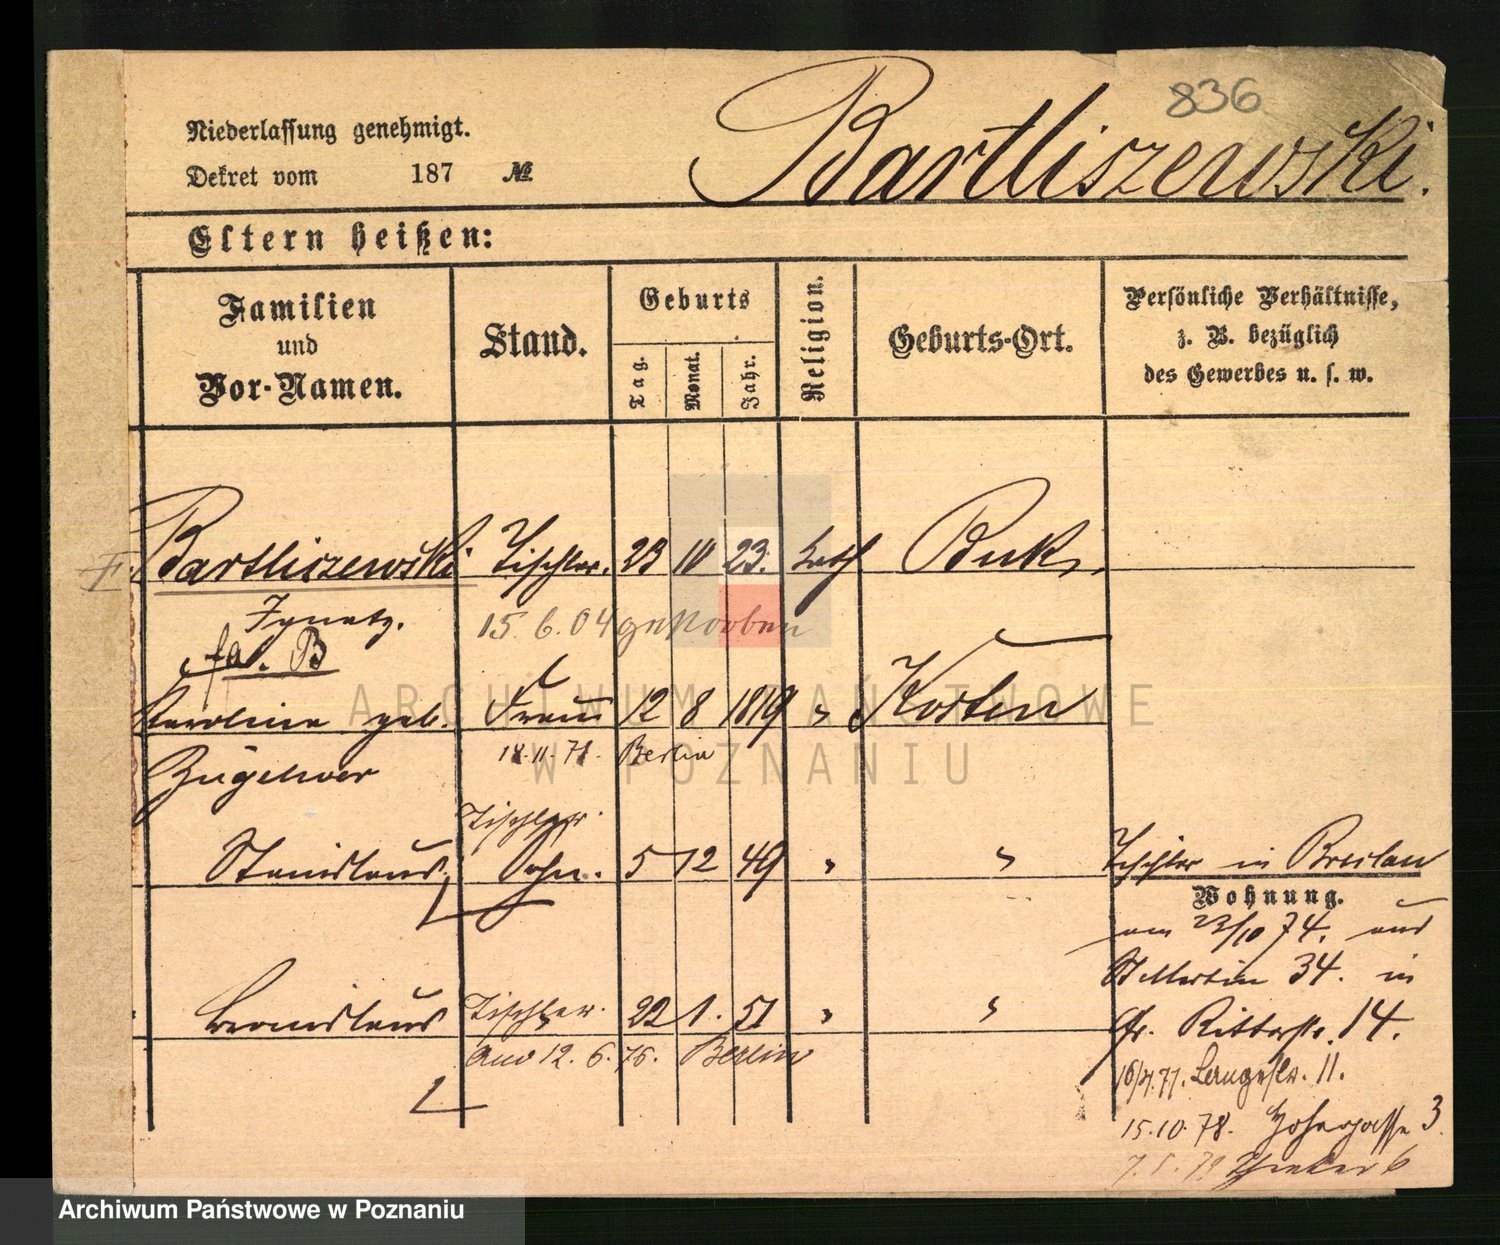 836
Niederlassung genehmigt.
Dekret vom 187 №
Bartliszewski.
Eltern heißen:
Familien und Vor-Namen.
Stand.
Geburts
Tag.
Monat.
Jahr.
Religion.
Geburts-Ort.
Persönliche Verhältnisse,
z. B. bezüglich
des Gewerbes u. s. w.
Bartliszewski Tischler. 23 10 23. kath Buk
Ignatz. 15. 6. 04 gestorben
fa. B
Karoline geb. Frau 12 8 1819 " Kosten
18.11.71. Berlin
Tischler.
Stanislaus Sohn. 5 12 49 " " Tischler in Breslau
Wohnung.
am 23/10 74. aus
St Martin 34. in
Bronislaus Tischler. 22 1. 51 " " Gr. Ritterstr. 14.
Aus 12. 6. 75. Berlin
Langestr. 11.
15.10.78. 3.
ARCHIWUM PAŃSTWOWE
W POZNANIU
Archiwum Państwowe w Poznaniu